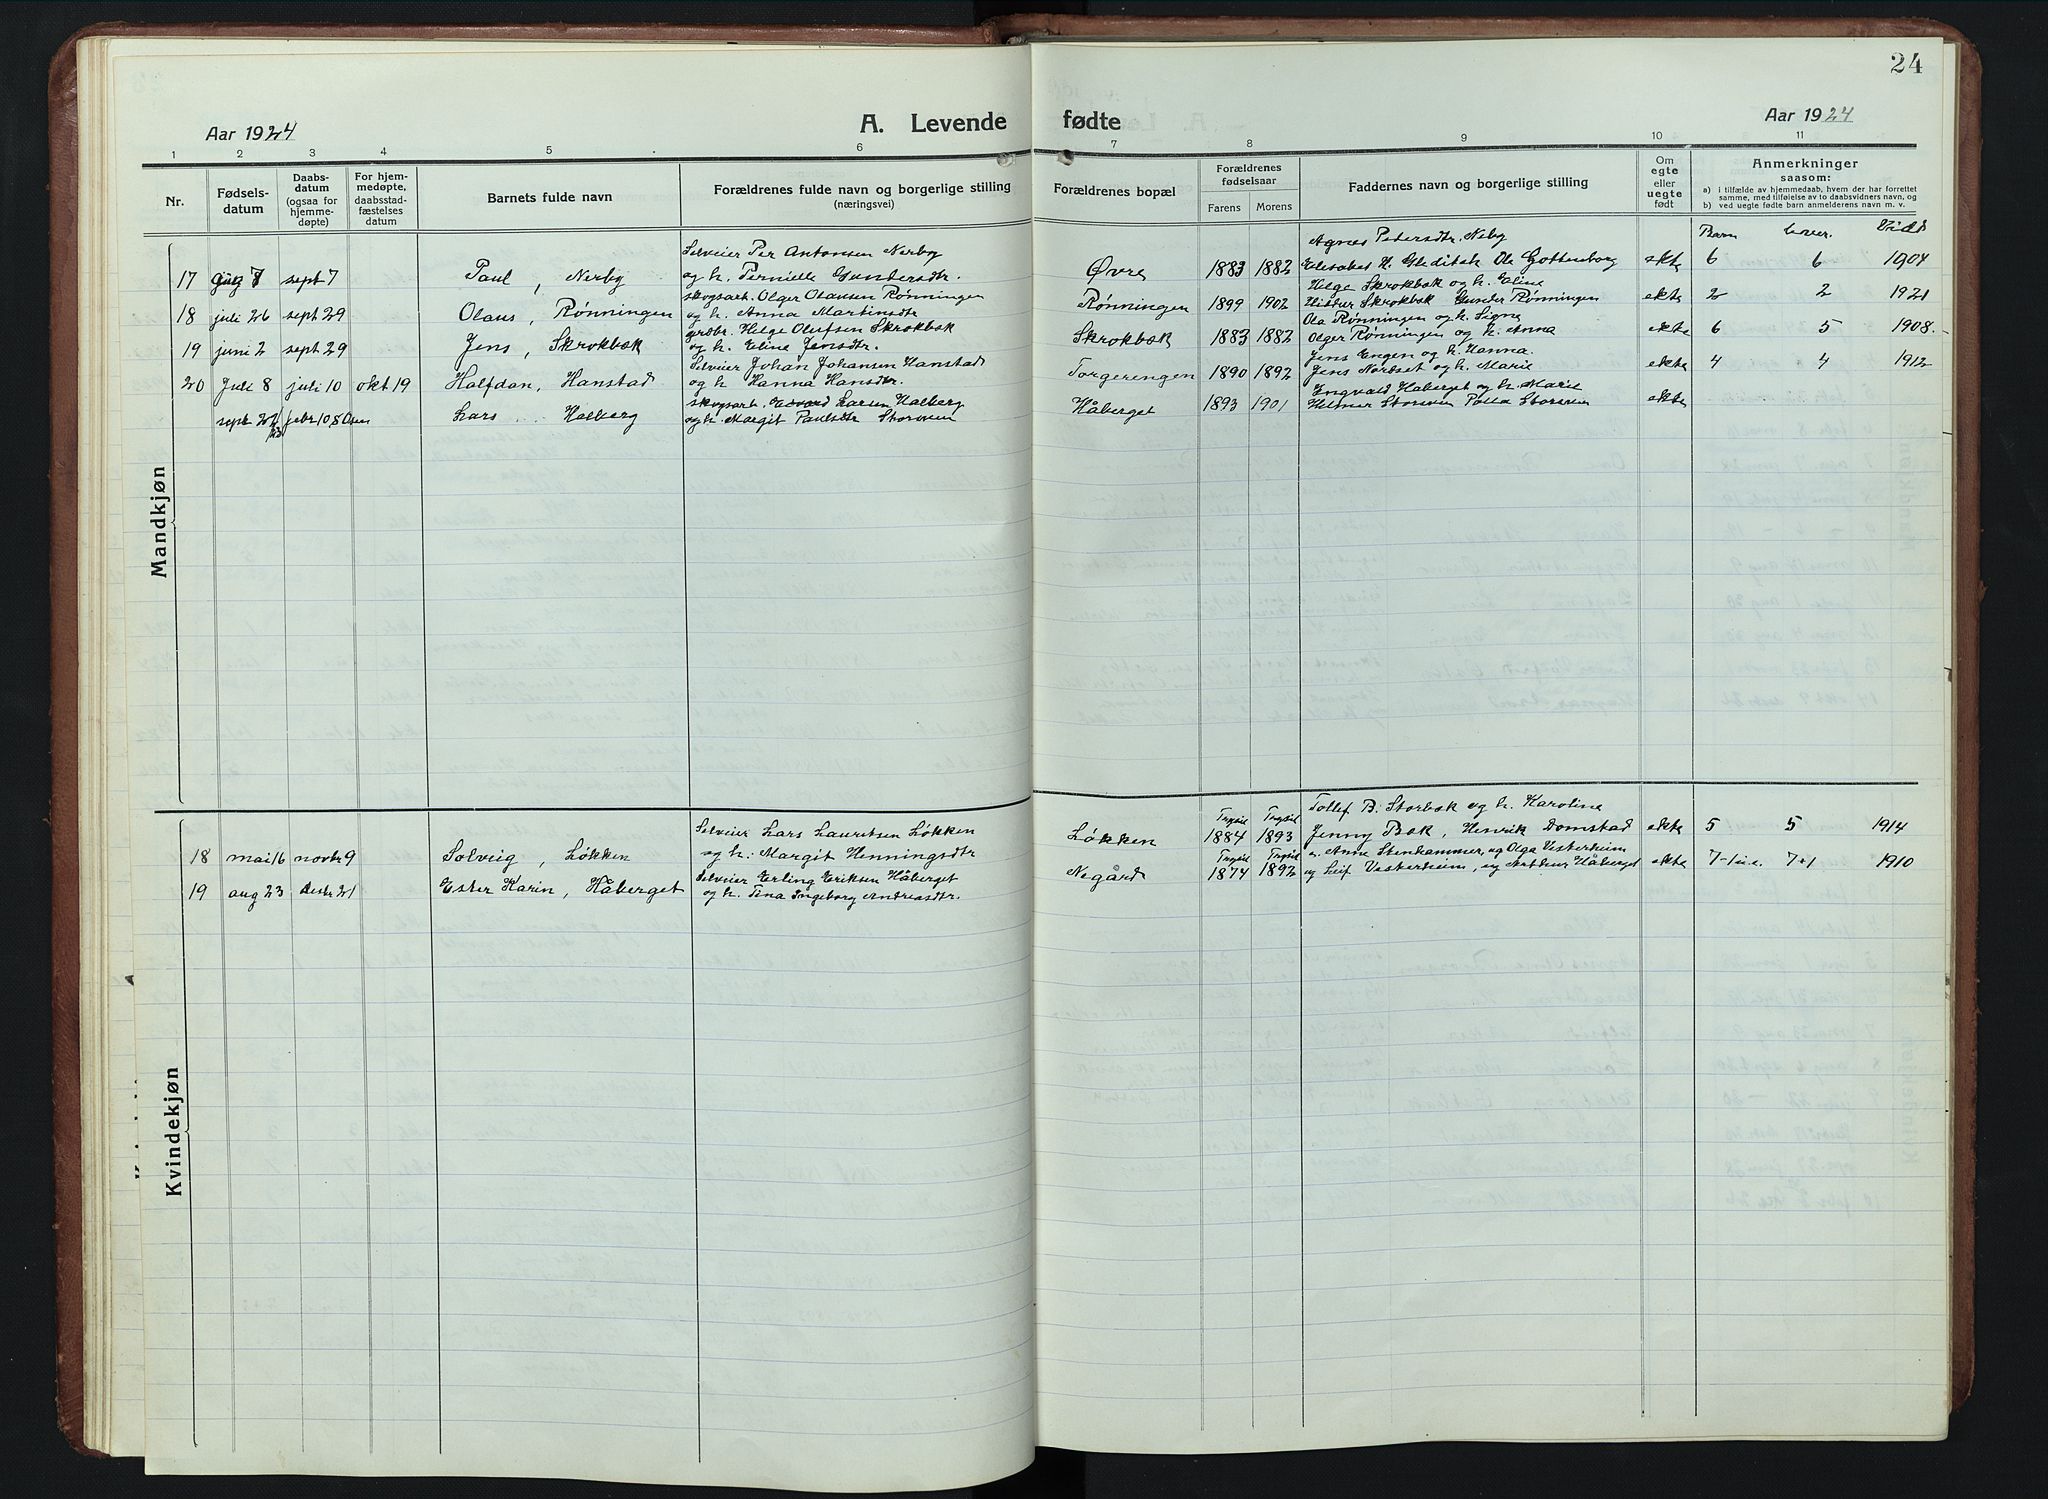 24
Aar 1924
A. Levende fødte
Aar 1924
1 2 3 4 5 6 7 8 9 10 11
Nr.
Fødsels-
datum
Daabs-
datum
(ogsaa for
hjemme-
døpte)
For hjem-
medøpte,
daabsstad-
fæstelses
datum
Barnets fulde navn
Forældrenes fulde navn og borgerlige stilling
(næringsvei)
Forældrenes bopæl
Forældrenes
fødselsaar
Farens
Morens
Faddernes navn og borgerlige stilling
Om
egte
eller
uegte
født
Anmerkninger
saasom:
a) i tilfælde av hjemmedaab, hvem der har forrettet
samme, med tilføielse av to daabsvidners navn, og
b) ved uegte fødte barn anmelderens navn m. v.
Barn Lever. Viet
Mandkjøn
Selveier Per Antonsen Nerby Agnes Petersdtr. Neby
17 aug 7 sept 7 Paul, Nerby og h. Pernille Gundersdtr. Øvre 1883 1882 Elisabet H. Gleditsh Ola Gottenborg ekte 6 6 1904
skogsarb. Olger Olausen Rønningen Helge Skrokbæk og h. Eline
18 juli 26 sept 29 Olaus, Rønningen og h. Anna Martinsdtr Rønningen 1899 1902 Hildur Skrokbæk Gunder Rønningen ekte 2 2 1921
grdbr. Helge Olufsen Skrokbæk Ola Rønningen og h. Signe
19 juni 2 sept 29 Jens, Skrokbæk og h. Eline Jensdtr. Skrokbæk 1883 1882 Olger Rønningen og h. Anna ekte 6 5 1908.-
Selveier Johan Johansen Hanstad Jens Engen og h. Hanna.
20 Juli 8 juli 10 okt 19 Halfdan, Hanstad og h. Hanna Hansdtr. Torgerengen 1890 1892 Jens Nordset og h. Marie ekte 4 4 1912
skogsarb. Edvard Larsen Halberg Engvald Haberget og h. Marie
sept 22 febr 10, Lars Halberg og h. Margit Paulsdtr Storsven Håberget 1893 1901 Helmer Storsven Palla Storsven ekte
Kvindekjøn
Selveier Lars Lauritsen Løkken Trysil Trysil Tollef B. Storbæk og h. Karoline
18 mai 16 novbr 9 Solveig, Løkken og h: Margit Henningsdtr Løkken 1884 1893 Jenny Bæk, Henrik Domstad ekte 5 5 1914
Selveier Erling Eriksen Håberget Trysil Trysil Anne Stenhammer, og Olga Vesterheim
19 aug 23 desbr 21 Ester Karin, Håberget og h. Tina Ingeborg Andreasdtr. Negård 1874 1892 og Leif Vesterheim, og Arthur Håberget ekte 7+1 1910